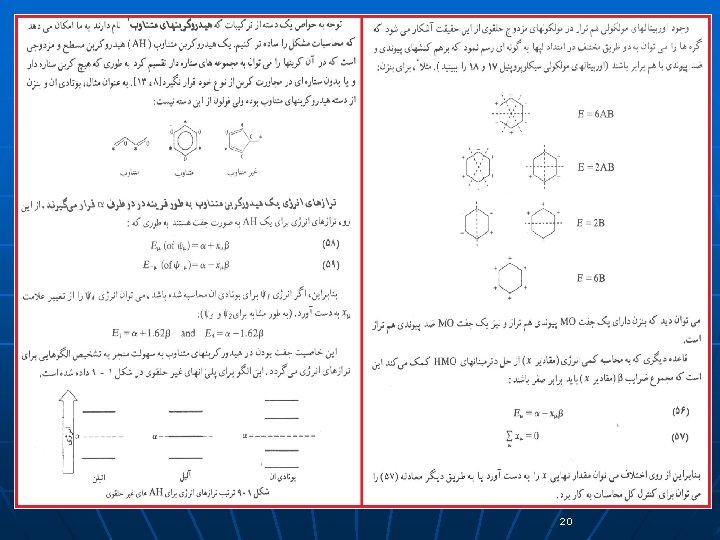 وجود اوربیتالهای مولکولی هم تراز در مولکولهای مزدوج حلقوی از این حقیقت آشکار می شود که
گره ها را می توان به دو طریق مختلف در امتداد لپها به گونه ای رسم نمود که برهم کنشهای پیوندی و
ضد پیوندی با هم برابر باشند (اوربیتالهای مولکولی سیکلوپروپنیل ۱۷ و ۱۸ را ببینید). مثلاً، برای بنزن:
E = 6AB
E = 2AB
E = 2B
E = 6B
می توان دید که بنزن دارای یک جفت MO پیوندی هم تراز و نیز یک جفت MO ضد پیوندی هم تراز
است.
قاعده دیگری که به محاسبه کمی انرژی (مقادیر x) از حل دترمینانهای HMO کمک می کند این
است که مجموع ضرایب β (مقادیر x) باید برابر صفر باشند:
Eμ = α − xμβ (۵۶)
∑ xμ = 0 (۵۷)
μ
بنابراین از روی اختلاف می توان مقدار نهایی x را به دست آورد یا به طریق دیگر معادله (۵۷) را
می توان برای کنترل کل محاسبات به کار برد.
توجه به خواص یک دسته از ترکیبات که هیدروکربنهای متناوب نام دارند به ما امکان می دهد
که محاسبات مشکل را ساده تر کنیم. یک هیدروکربن متناوب (AH) هیدروکربن مسطح و مزدوجی
است که در آن کربنها را می توان به مجموعه های ستاره دار تقسیم کرد به طوری که هیچ کربن ستاره دار
و یا بدون ستاره ای در مجاورت کربنی از نوع خود قرار نگیرد [۸، ۱۳]. به عنوان مثال، بوتادی ان و بنزن
از دسته هیدروکربنهای متناوب بوده ولی فولون از این دسته نیست:
غیر متناوب متناوب متناوب
ترازهای انرژی یک هیدروکربن متناوب به طور قرینه در دو طرف α قرار می گیرند. از این
رو، ترازهای انرژی برای یک AH به صورت جفت هستند به طوری که:
Eμ (of ψμ) = α + xμβ (۵۸)
E−μ (of ψ−μ) = α − xμβ (۵۹)
بنابراین، اگر انرژی ψ₁ برای بوتادی ان محاسبه شده باشد، می توان انرژی ψ₄ را از تغییر علامت
xμ به دست آورد. (به طور مشابه برای ψ₂ و ψ₃):
E₁ = α + 1.62β and E₄ = α − 1.62β
این خاصیت جفت بودن در هیدروکربنهای متناوب به سهولت منجر به تشخیص الگوهایی برای
ترازهای انرژی می گردد. این الگو برای پلی انهای غیر حلقوی در شکل ۱ - ۹ داده شده است.
انرژی
α α α
اتیلن آلیل بوتادی ان
شکل ۱-۹ ترتیب ترازهای انرژی برای AH های غیر حلقوی
20